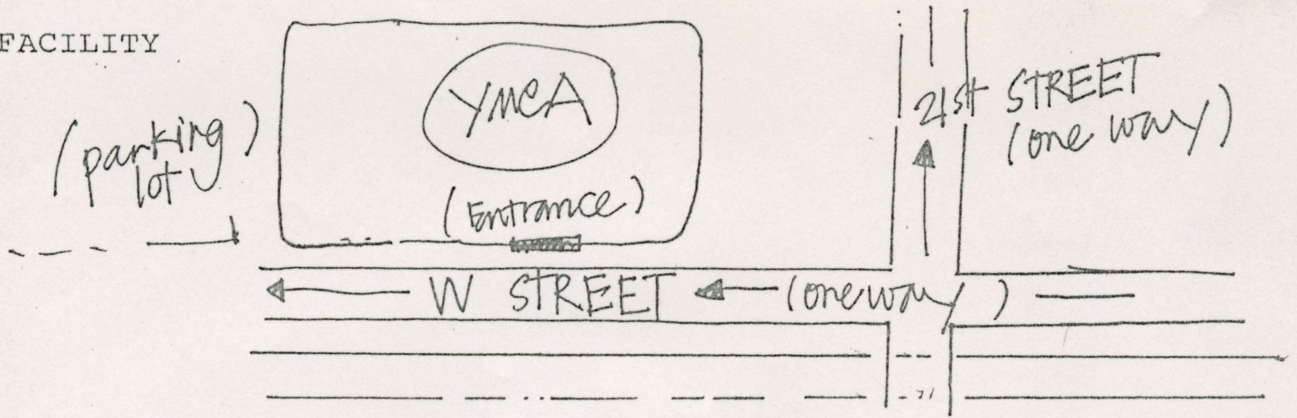 FACILITY
YMCA
(parking
lot)
(Entrance)
21st STREET
(one way)
W STREET
(one way)